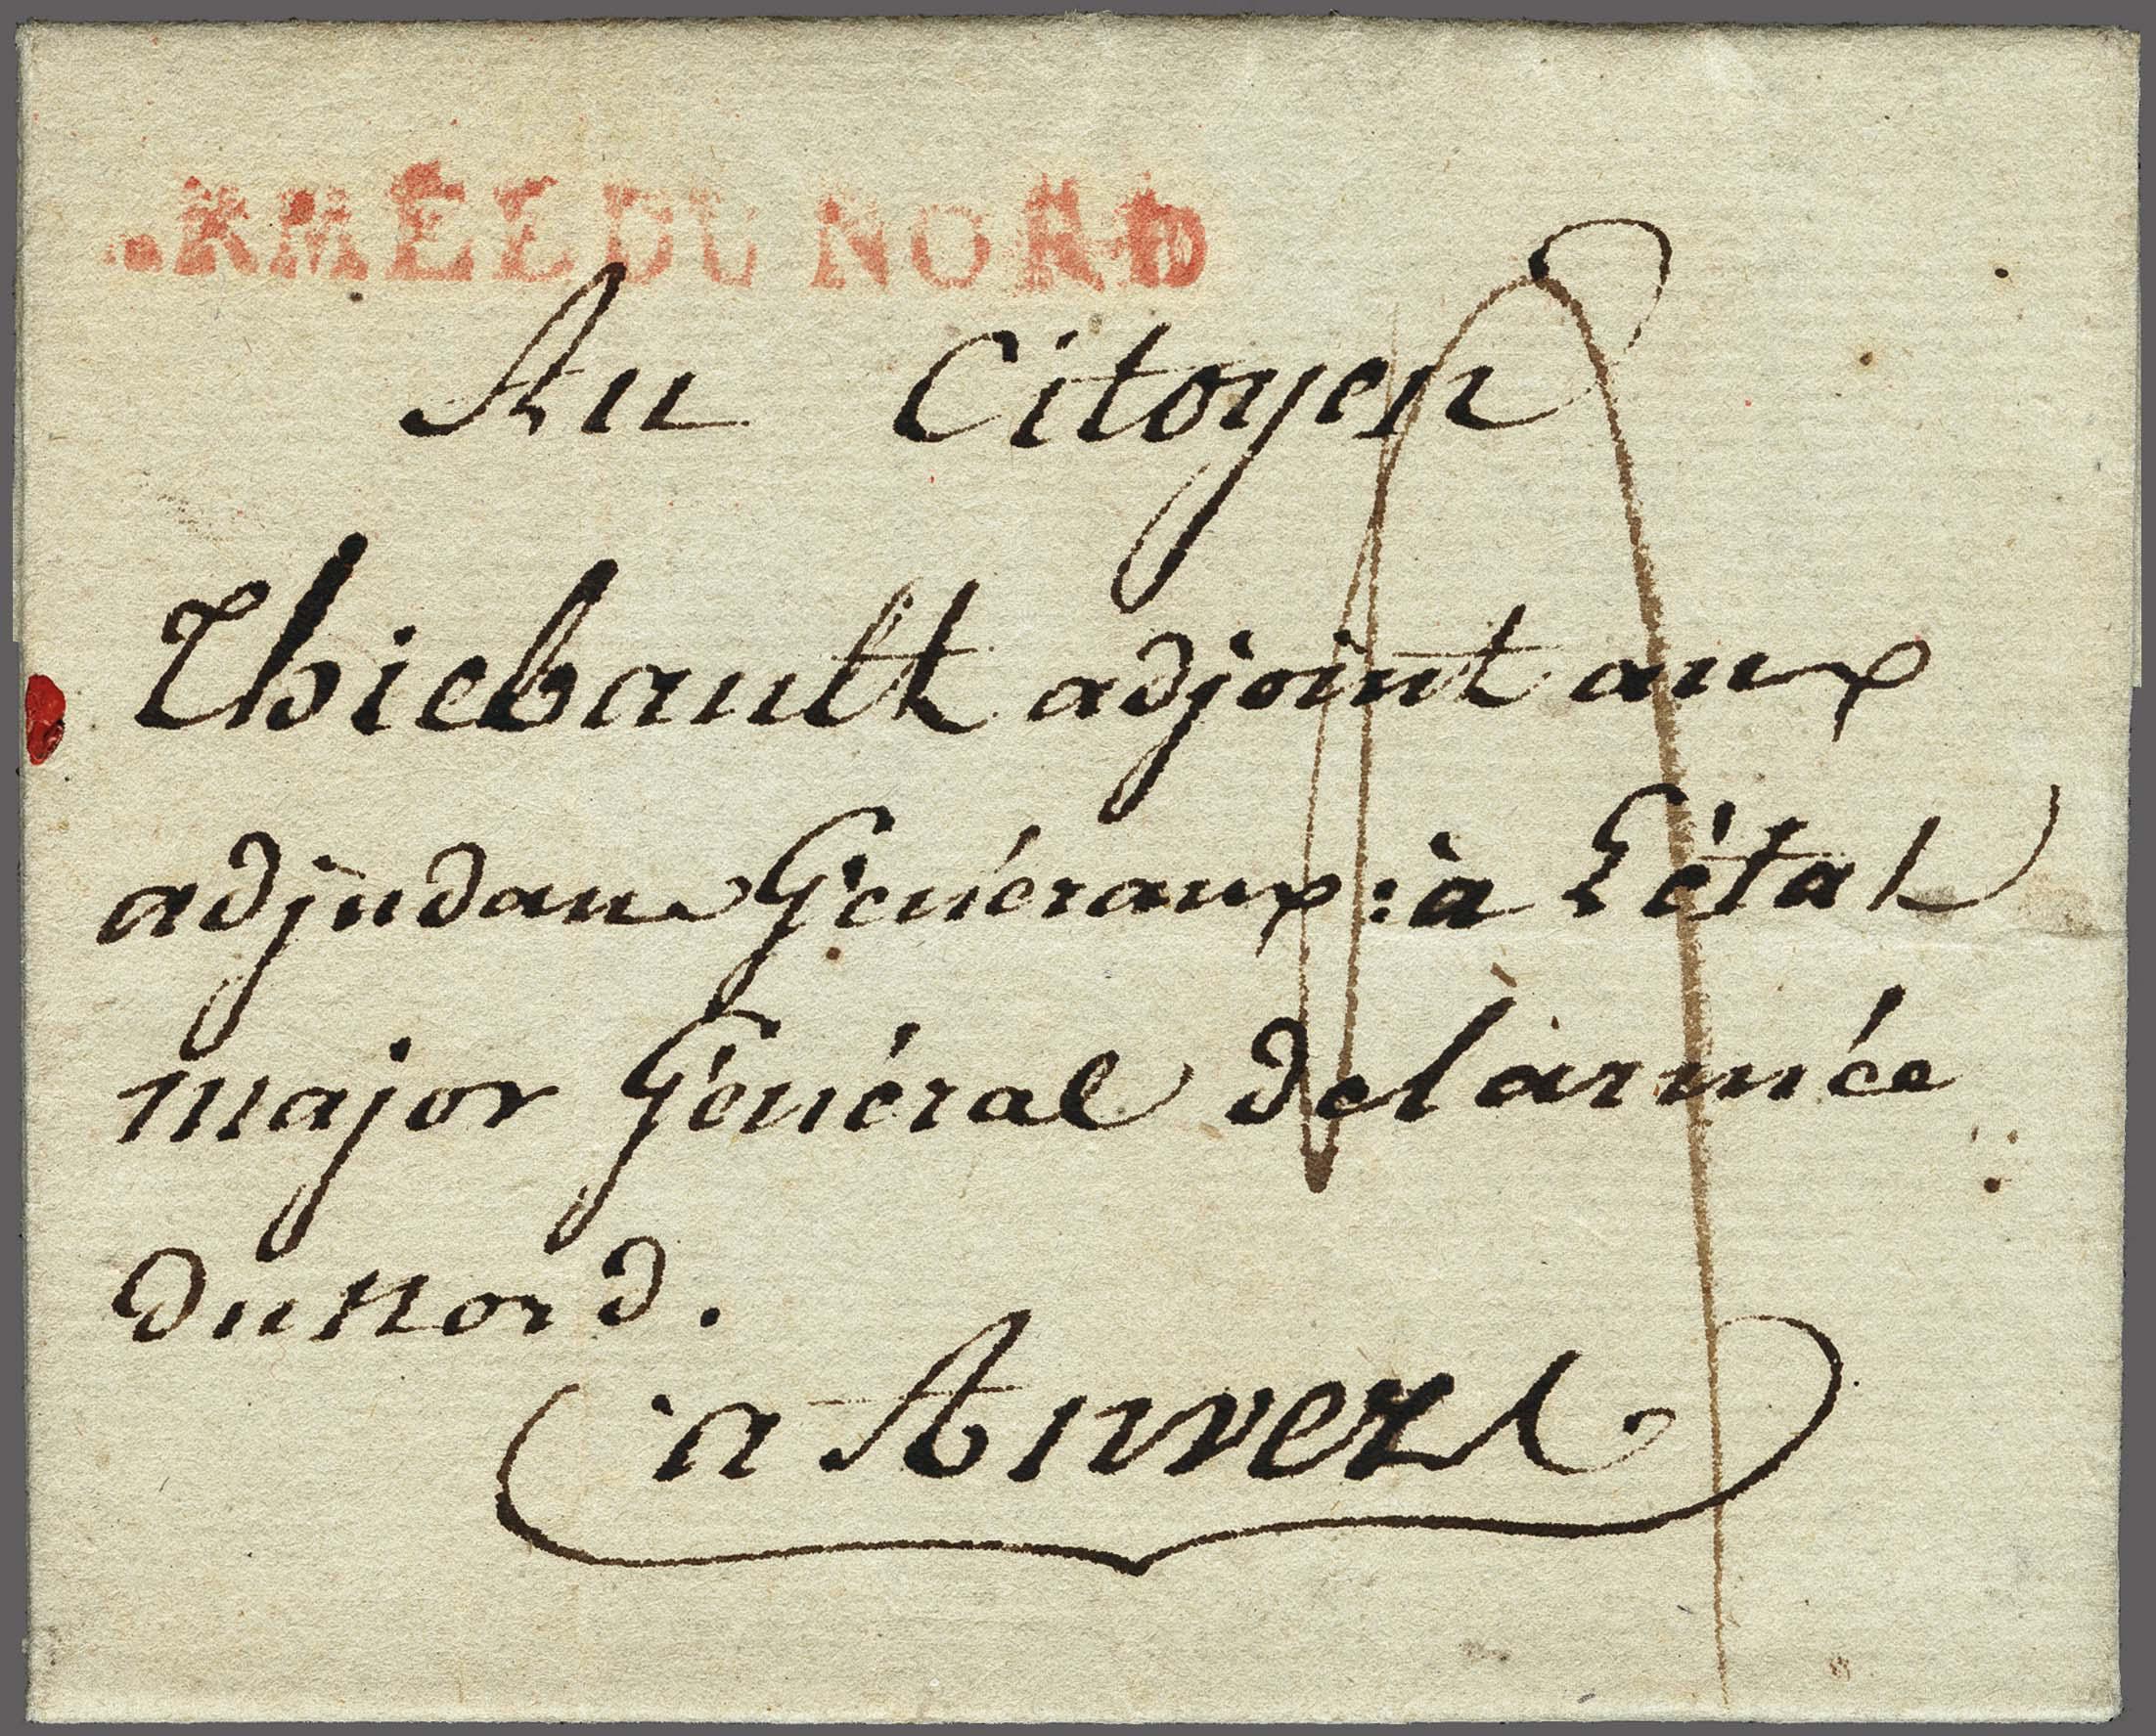 ARMÉE DU NORD
Au Citoyen
Thiebault adjoint aux
adjudans Généraux: à L'état
major Général de l'armée
du Nord.
à Anvers